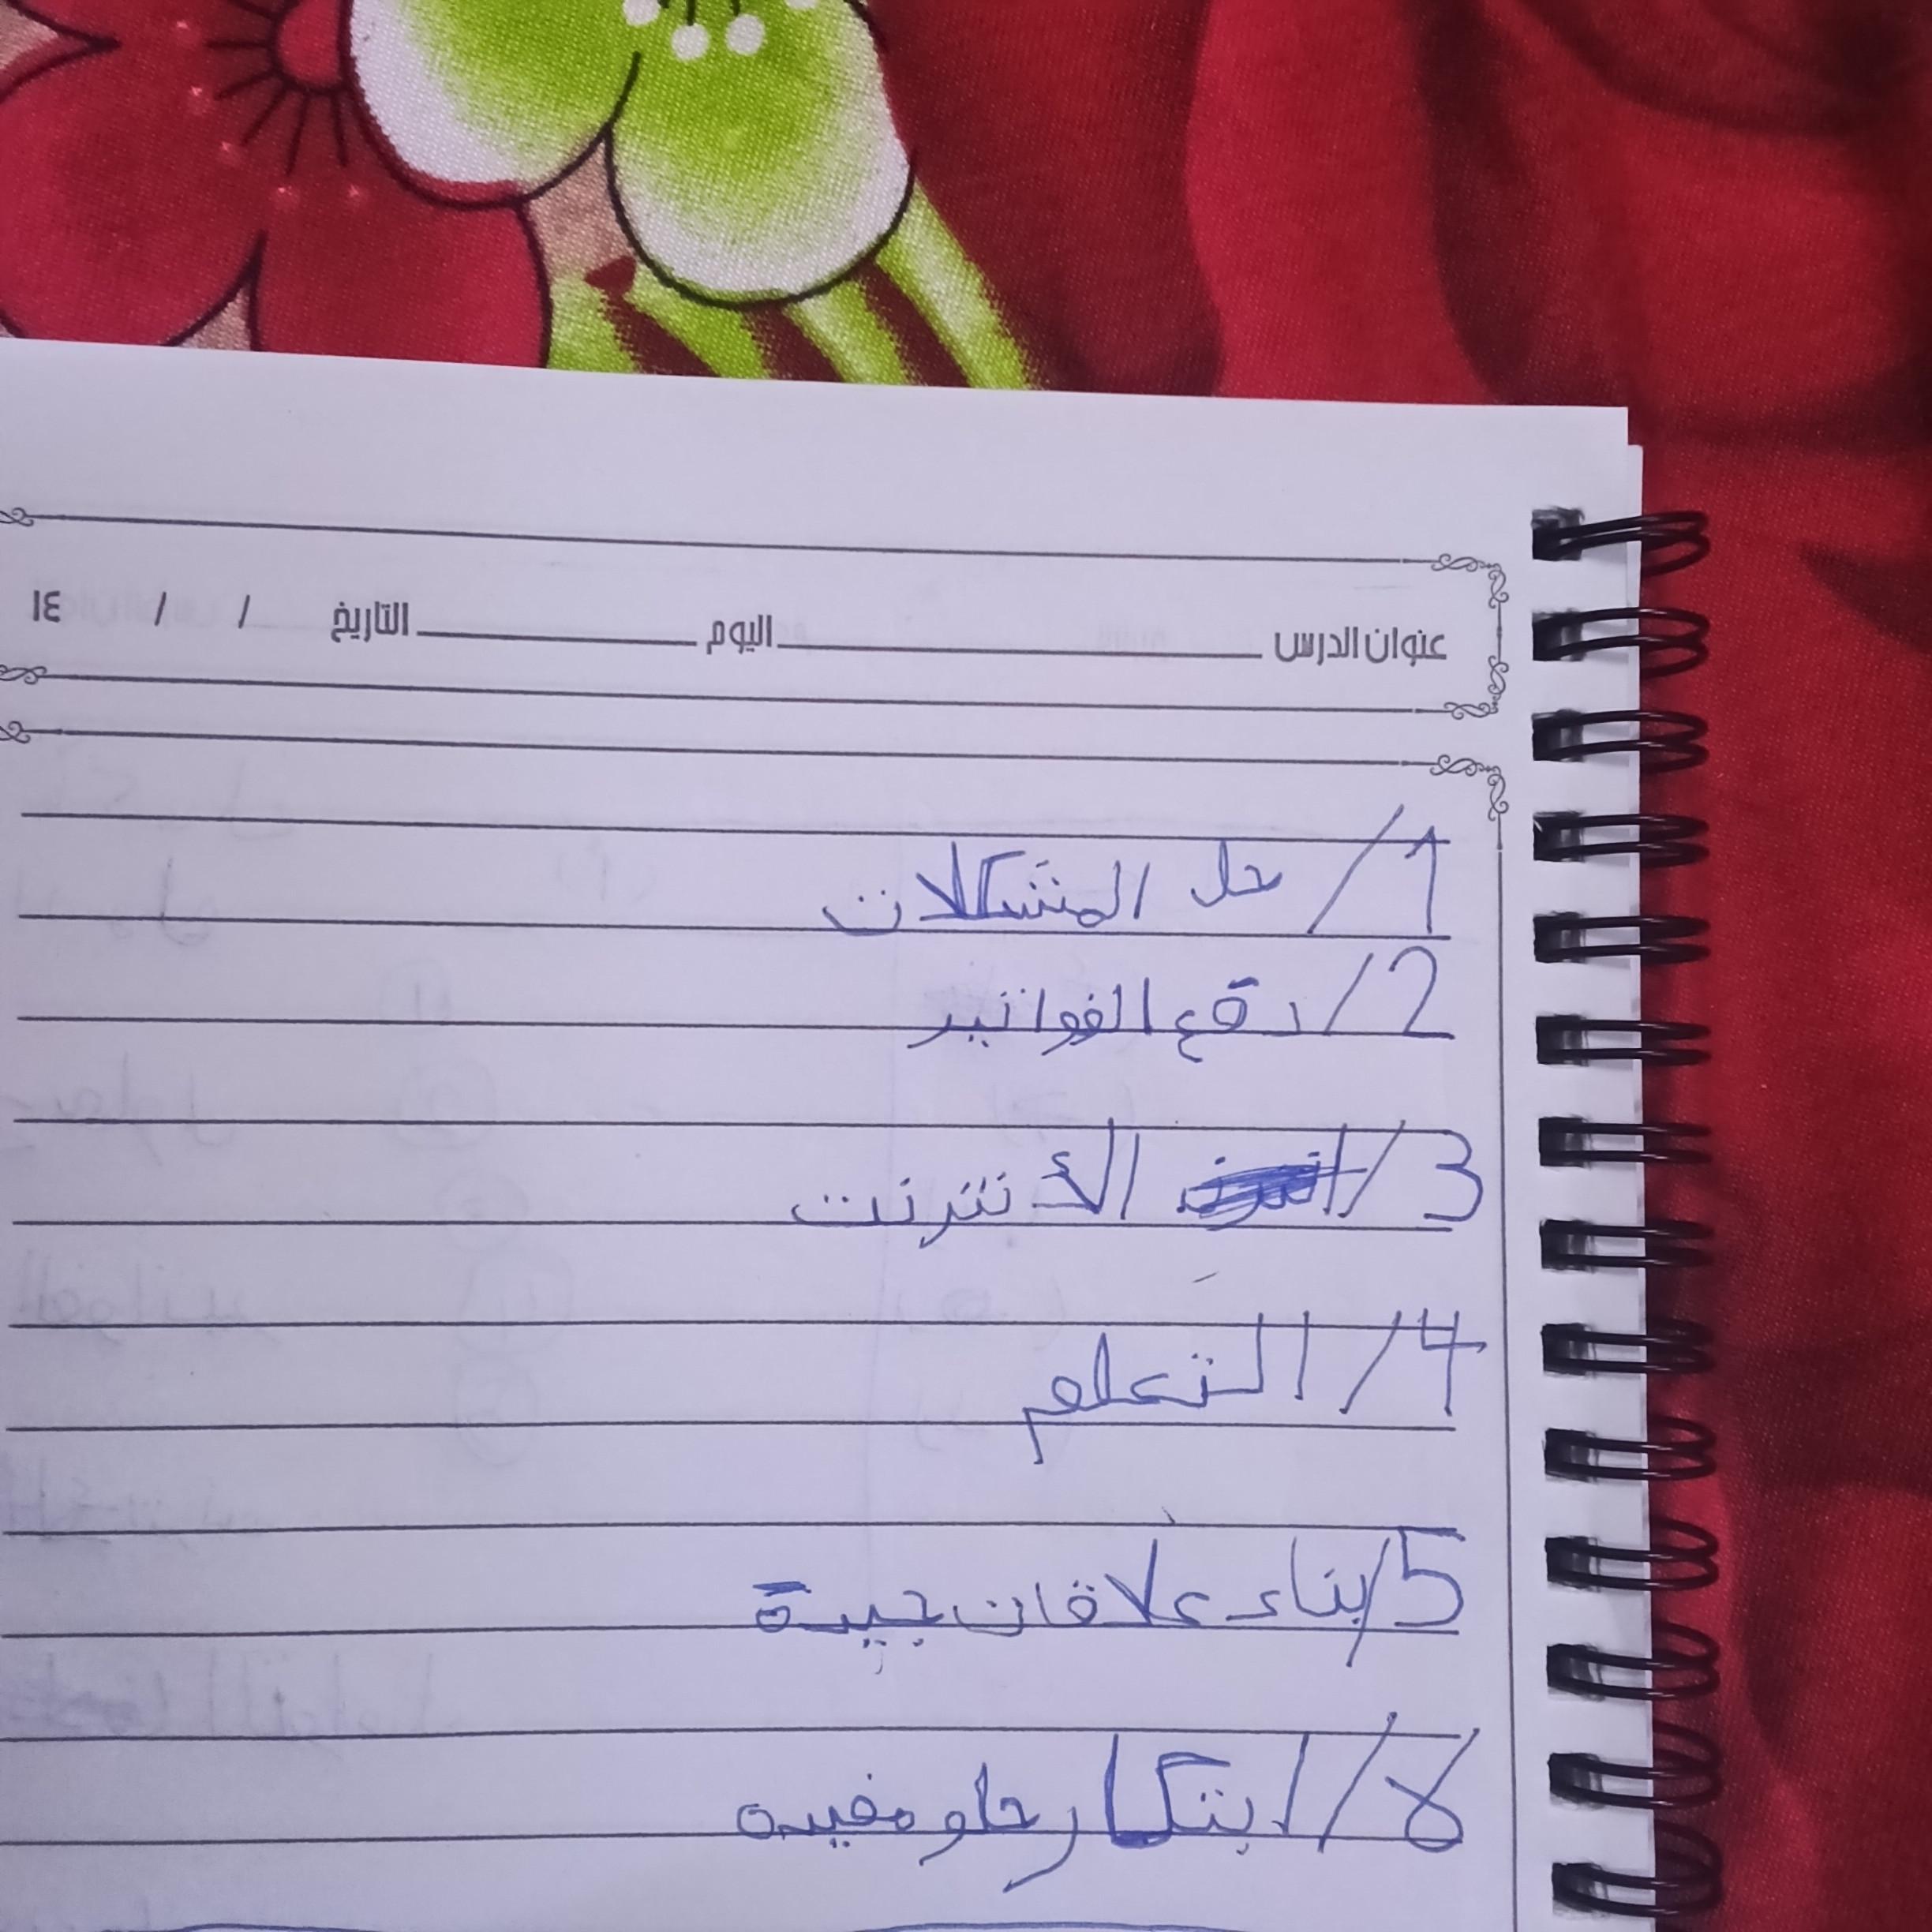 عنوان الدرس اليوم التاريخ / / ١٤
1/ حل المشكلات
2/ دفع الفواتير
3/ الأنترنت
4/ التعلم
5/ بناء علاقات جيدة
6/ ابتكار حلو مفيده